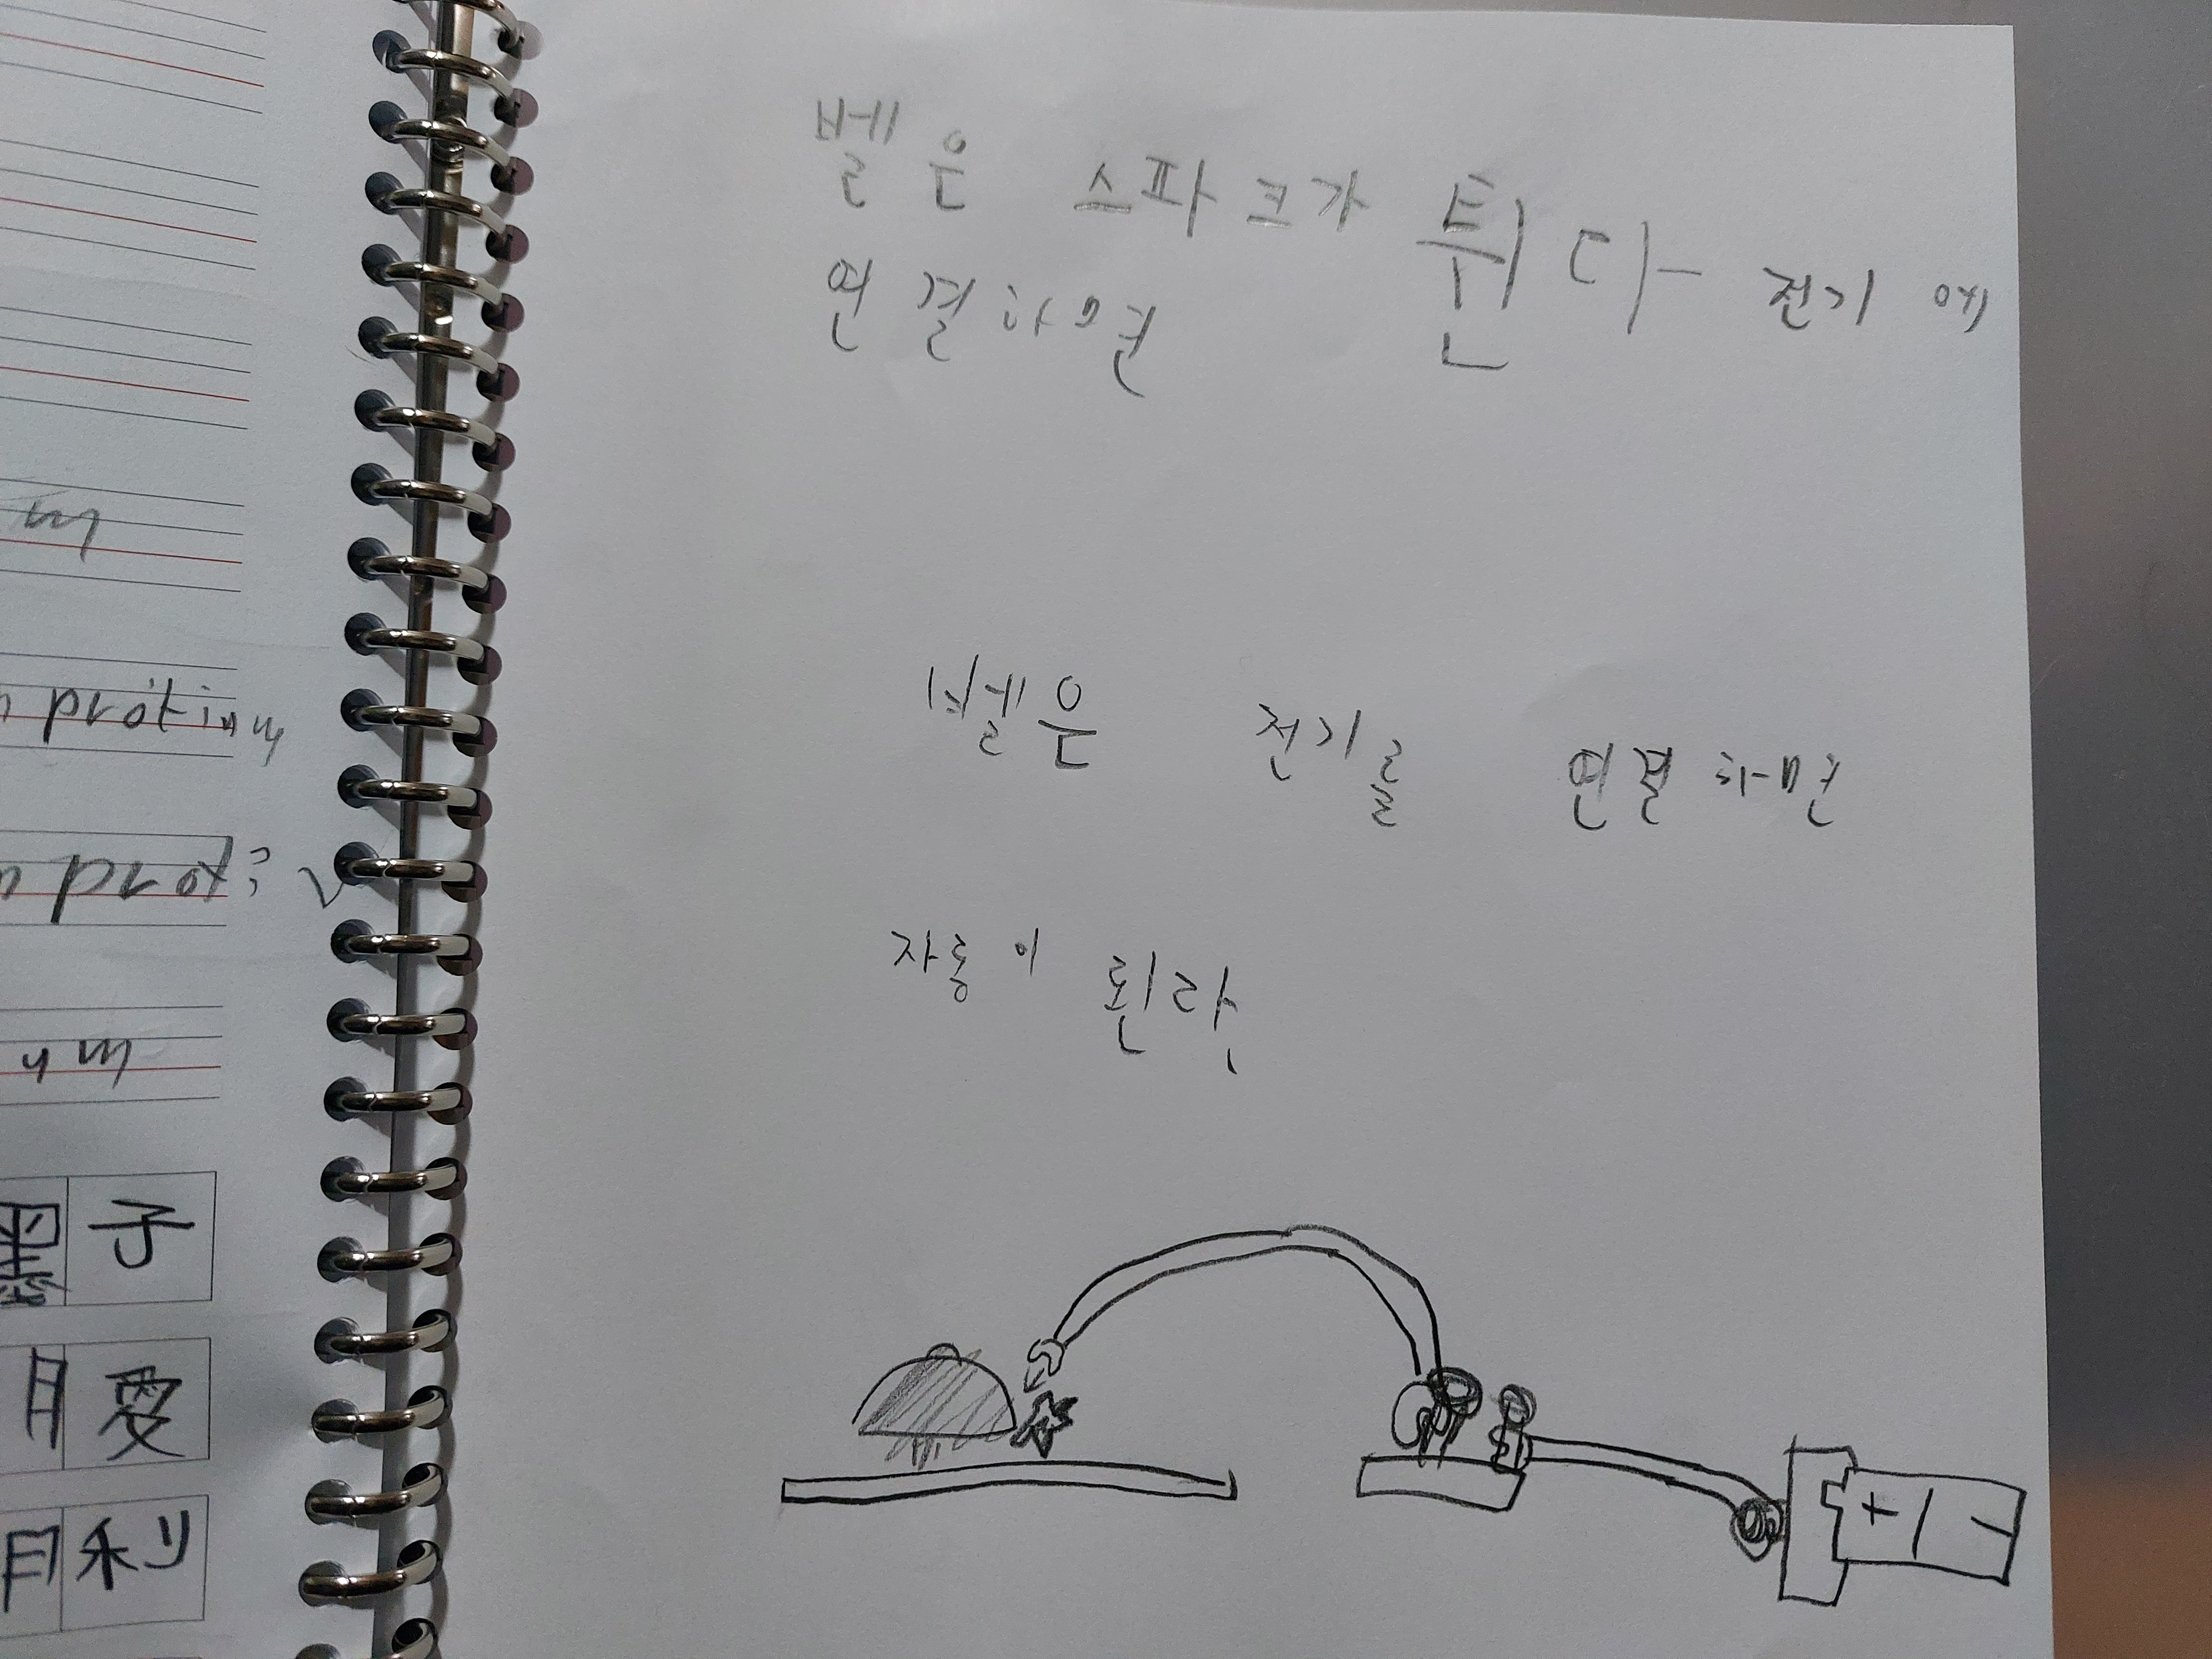 벨은 스파크가 튄다- 전기에
연결하면
벨은 전기를 연결하면
자동이 된다
m
protinum
proti
um
墨子
月愛
利
+ -